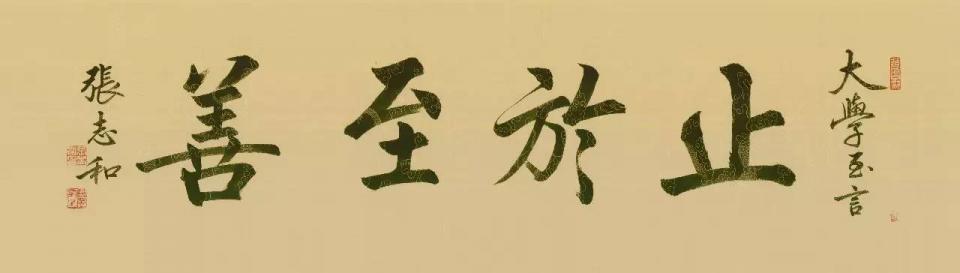 大學至言
止於至善
張志和